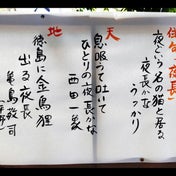 佳句「夜長」
夜という名の猫と居る
夜長かな
うっかり
天
息吸って吐いて
ひとりの夜長かな
西田一
地
徳島に金長狸
出る夜長